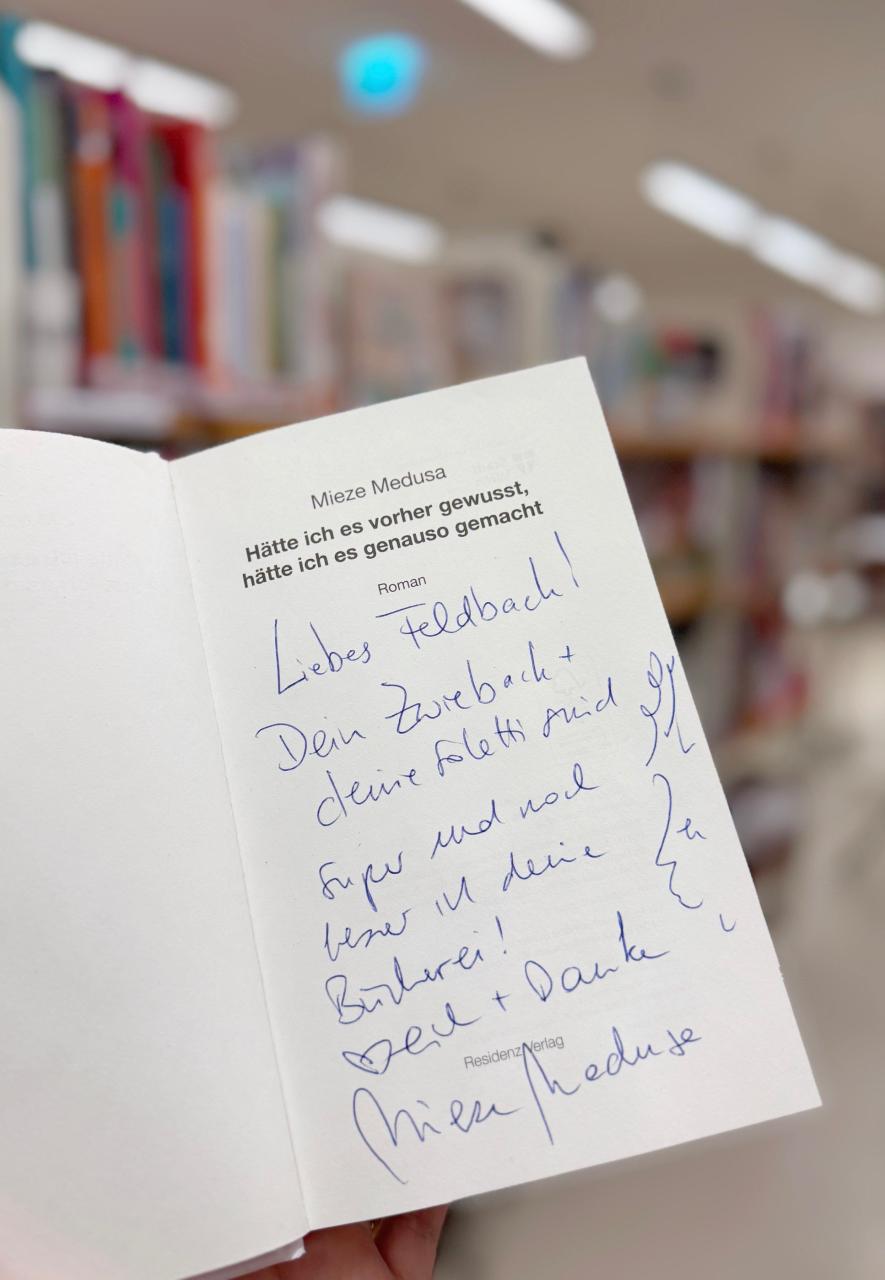 Mieze Medusa
Hätte ich es vorher gewusst,
hätte ich es genauso gemacht
Roman
Liebes Feldbach!
Dein Zwieback +
deine Soletti sind
super und noch
besser ist deine
Bücherei!
+ Danke
Residenz Verlag
Mieze Medusa